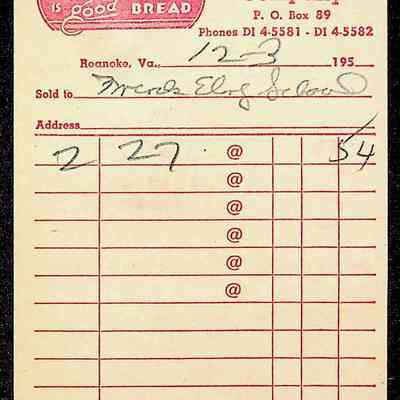 IS good BREAD
P. O. Box 89
Phones DI 4-5581 - DI 4-5582
Roanoke, Va., 12-3 195
Sold to Eley School
Address
2 27 @ 54
@
@
@
@
@